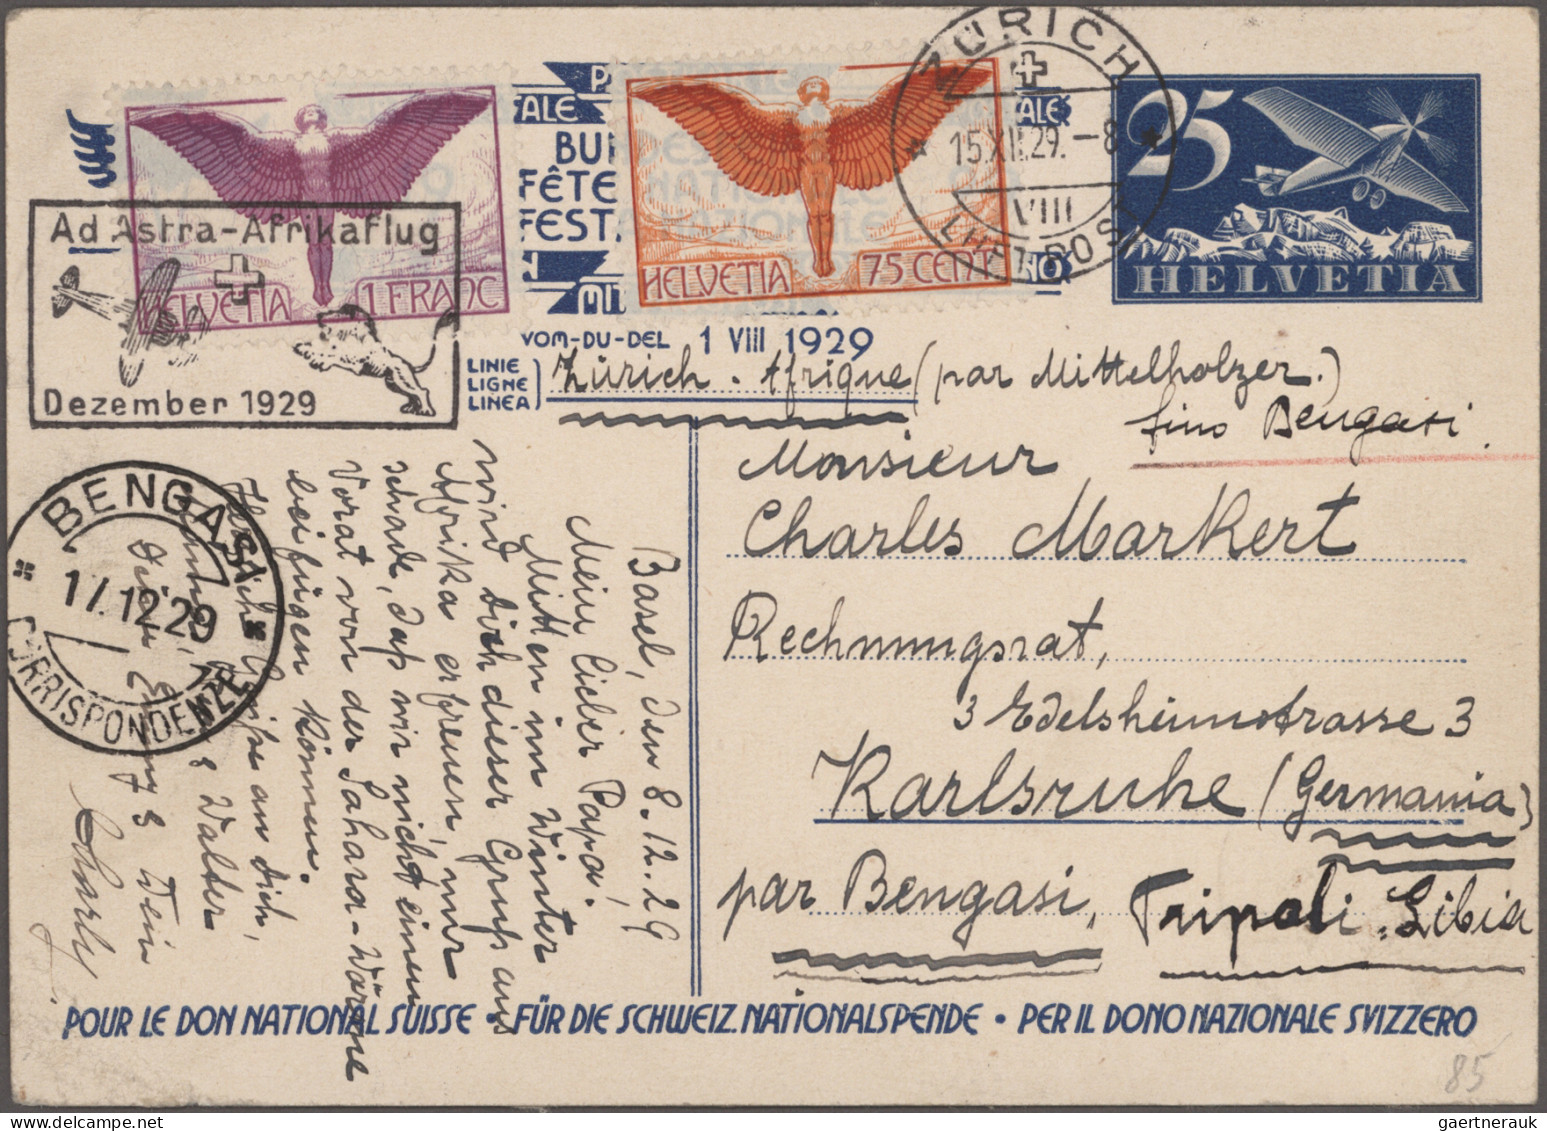 Ad Astra-Afrikaflug
HELVETIA 1 FRANC
Dezember 1929
HELVETIA 75 CENT.
BUN
FÊTE
FEST
VOM-DU-DEL 1 VIII 1929
ZÜRICH
15.XII.29.-8
VIII
25
HELVETIA
LINIE
LIGNE
LINEA
Zürich - Afrique (par Mittelholzer.)
fino Bengasi.
Monsieur
Charles Markert
Rechnungsrat,
3 Edelsheimstrasse 3
Karlsruhe (Germania)
par Bengasi, Tripoli, Libia
BENGASI
17.12.29
CORRISPONDENZE
Basel, den 8.12.29
Mein lieber Papa!
Mitten im Winter
wird dich dieser Gruß aus
Afrika erfreuen, nur
schade, daß wir nicht einen
Vorat von der Sahara-Wärme
beifügen können.
Herzliche Grüße an dich,
Walter
Dein
Charly
POUR LE DON NATIONAL SUISSE • FÜR DIE SCHWEIZ. NATIONALSPENDE • PER IL DONO NAZIONALE SVIZZERO
85
gaertnerauk